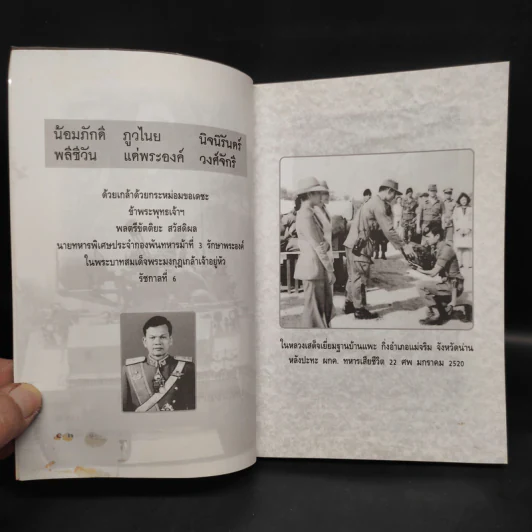 น้อมภักดี ภูวไนย นิจนิรันดร์
พลีชีวัน แด่พระองค์ วงศ์จักรี
ด้วยเกล้าด้วยกระหม่อมขอเดชะ
ข้าพระพุทธเจ้าฯ
พลตรีขัตติยะ สวัสดิผล
นายทหารพิเศษประจำกองพันทหารม้าที่ 3 รักษาพระองค์
ในพระบาทสมเด็จพระมงกุฎเกล้าเจ้าอยู่หัว
รัชกาลที่ 6
ในหลวงเสด็จเยี่ยมฐานบ้านแพะ กิ่งอำเภอแม่จริม จังหวัดน่าน
หลังปะทะ ผกค. ทหารเสียชีวิต 22 ศพ มกราคม 2520